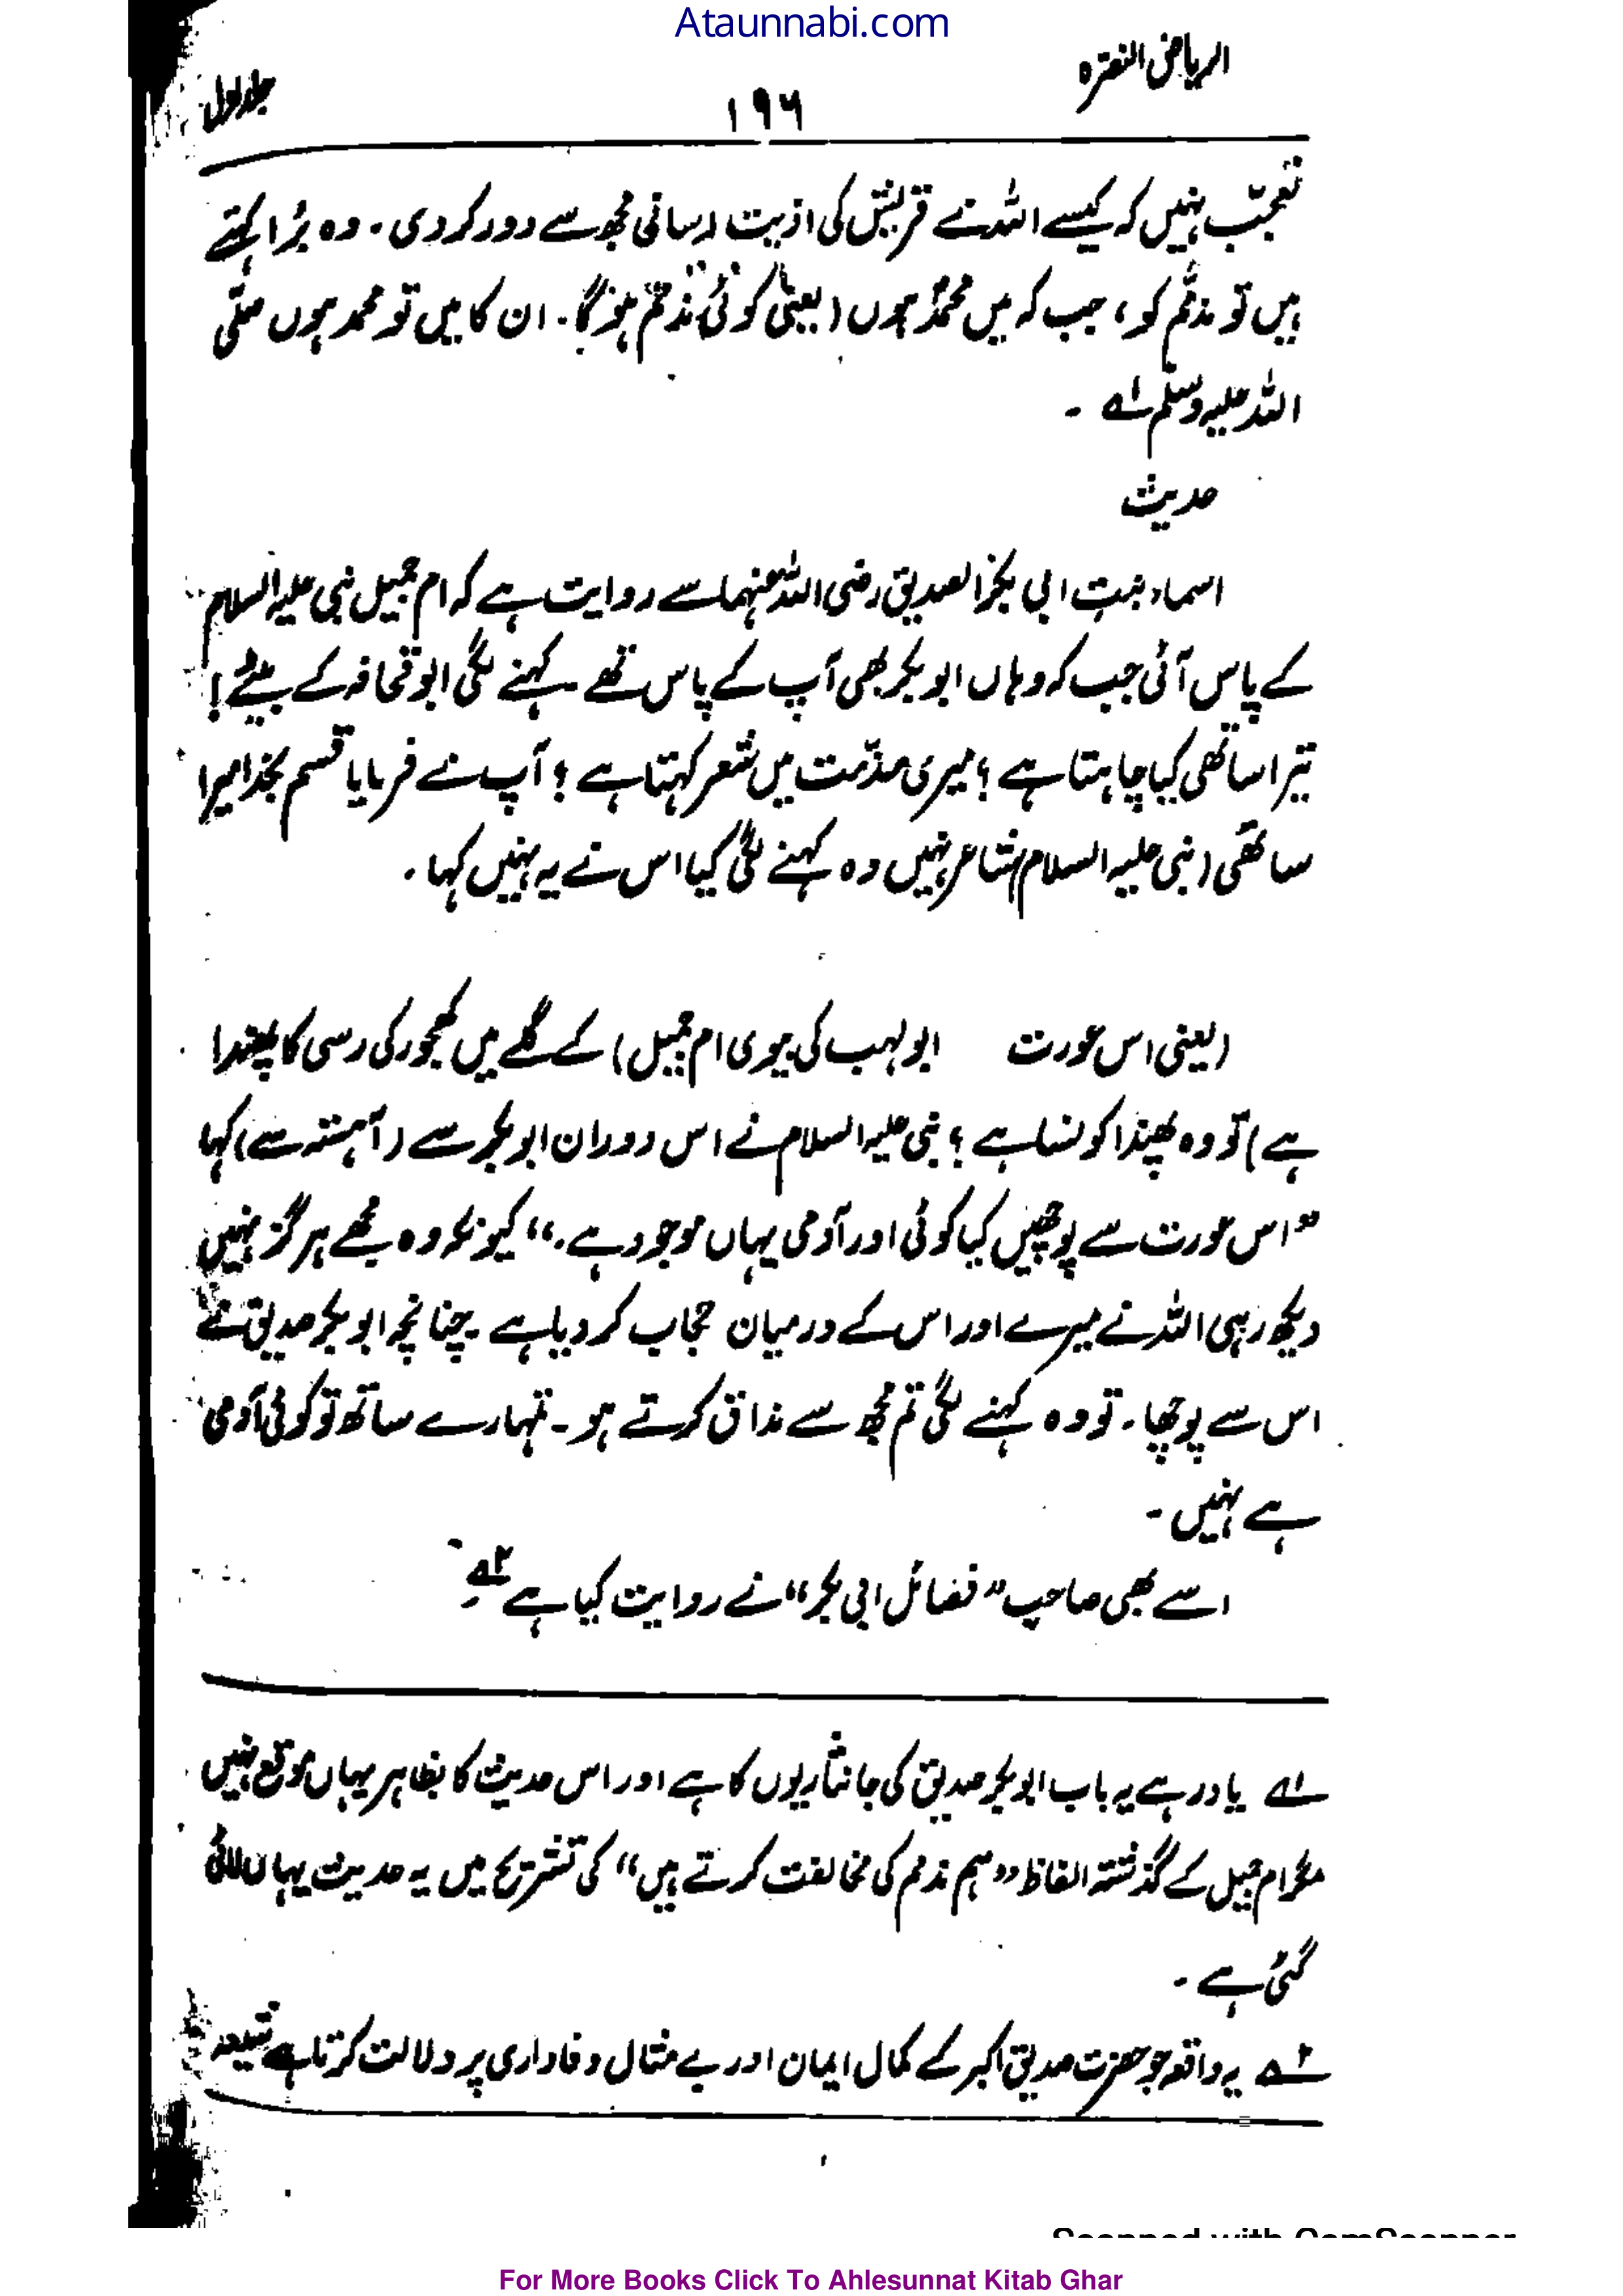 Ataunnabi.com
الریاض النضرہ
۱۹۶
جلد اول
تعجّب نہیں کہ کیسے اللہ نے قریش کی اذیت رسانی مجھ سے دور کر دی ۔ وہ بُرا کہتے
ہیں تو مذمّم کو ، جب کہ میں محمدؐ ہوں (یعنی کوئی مذمّم ہوگا ۔ ان کا میں تو محمد ہوں صلّی
اللہ علیہ وسلّم ۱ے ۔
حدیث
اسماء بنتِ ابی بکر الصدیق رضی اللہ عنہما سے روایت ہے کہ ام جمیل نبی علیہ السلام
کے پاس آئی جب کہ وہاں ابوبکر بھی آپ کے پاس تھے ۔ کہنے لگی ابو قحافہ کے بیٹے !
تیرا ساتھی کیا چاہتا ہے ؟ میری مذمّت میں شعر کہتا ہے ؟ آپ نے فرمایا قسم بخدا میرا
ساتھی (نبی علیہ السلام) شاعر نہیں وہ کہنے لگی کیا اس نے یہ نہیں کہا ۔
(یعنی اس عورت ابو لہب کی بیوی ام جمیل) کے گلے میں کھجور کی رسی کا پھندا
ہے) تو وہ پھندا کونسا ہے ؟ نبی علیہ السلام نے اس دوران ابوبکر سے (آہستہ سے) کہا
”اس عورت سے پوچھیں کیا کوئی اور آدمی یہاں موجود ہے ۔“ کیونکہ وہ مجھے ہرگز نہیں
دیکھ رہی اللہ نے میرے اور اس کے درمیان حجاب کر دیا ہے ۔ چنانچہ ابوبکر صدیق نے
اس سے پوچھا ۔ تو وہ کہنے لگی تم مجھ سے مذاق کرتے ہو ۔ تمہارے ساتھ تو کوئی آدمی
ہے نہیں ۔
اسے بھی صاحبِ ”فضائل ابی بکر“ نے روایت کیا ہے ۲ے
۱ے یاد رہے یہ باب ابوبکر صدیق کی جانثاریوں کا ہے اور اس حدیث کا بظاہر یہاں موقع نہیں
مگر ام جمیل کے گذشتہ الفاظ ”ہم مذمم کی مخالفت کرتے ہیں“ کی تشریح میں یہ حدیث یہاں لائی
گئی ہے ۔
۲ے یہ واقعہ جو حضرت صدیق اکبر کے کمال ایمان اور بے مثال وفاداری پر دلالت کرتا ہے شیعہ
For More Books Click To Ahlesunnat Kitab Ghar